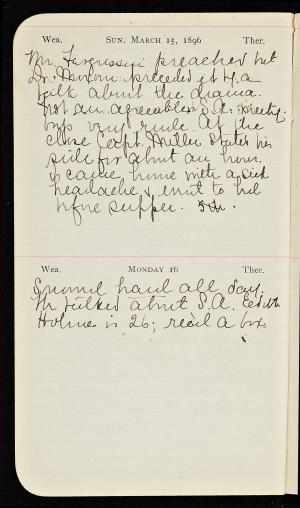 Wea. SUN. MARCH 15, 1896 Ther.
Mr. Ferguson preached but
Dr. preceded it by a
talk about the drama.
Not an agreeable S.A. meeting.
boys very rude. At the
close Capt. Miller states his
side for about an hour.
I came home with a sick
headache & went to bed
before supper.
Wea. MONDAY 16 Ther.
Sewed hard all day.
We talked about S.A. Edith
Holmes is 26; rec'd a box